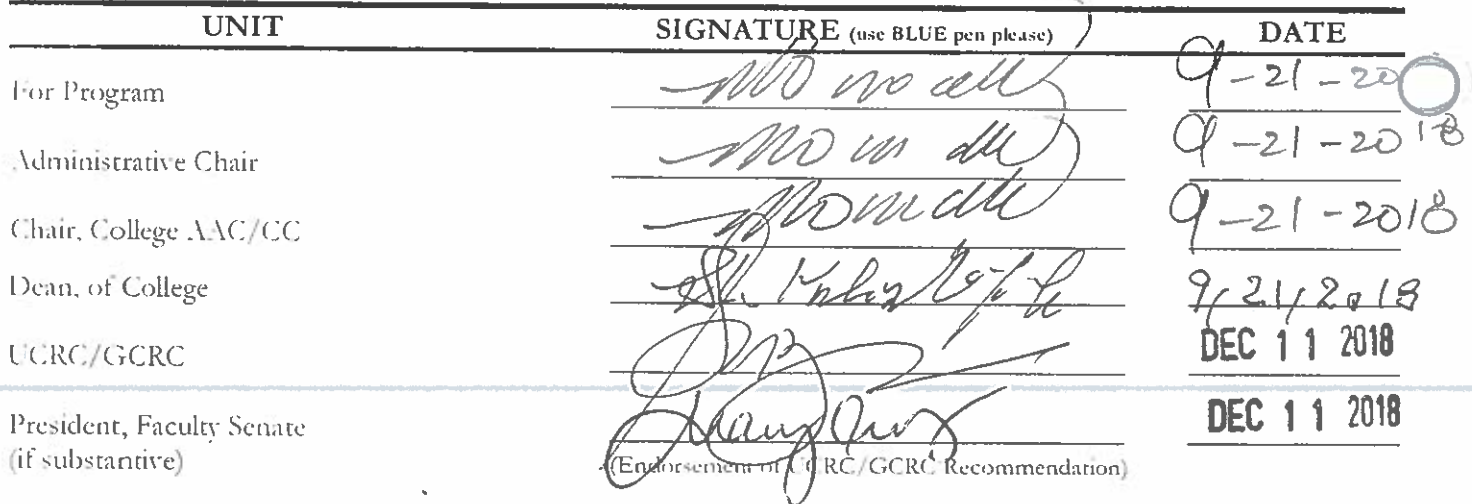 UNIT SIGNATURE (use BLUE pen please) DATE
For Program 9-21-20
Administrative Chair 9-21-2018
Chair, College AAC/CC 9-21-2018
Dean, of College 9/21/2018
UCRC/GCRC DEC 11 2018
President, Faculty Senate DEC 11 2018
(if substantive) (Endorsement of UCRC/GCRC Recommendation)